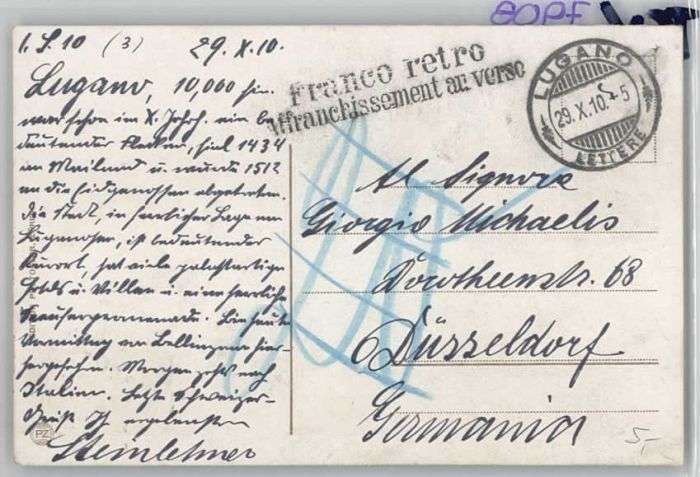 GOPF
1.S.10 (3) 29.X.10.
Lugano, 10,000 Ein.
war schon im X. Jahrh. ein be-
deutender Flecken, fiel 1434
an Mailand u. wurde 1512
an die Eidgenossen abgetreten.
Die Stadt, in herrlicher Lage am
Luganersee, ist bedeutender
Kurort, hat viele palastartige
Hotels u. Villen u. eine herrliche
Seeuferpromenade. Bin heute
Vormittag von Bellinzona hier-
hergefahren. Morgen geht's nach
Italien. Letzte Schweizer-
Grüße Ihr ergebenster
Steinlehner
Franco retro
Affranchissement au verso
LUGANO
29.X.10.-5
LETTERE
Al Signore
Giorgio Michaelis
Dorotheenstr. 68
Düsseldorf
Germania
PZ
5,-